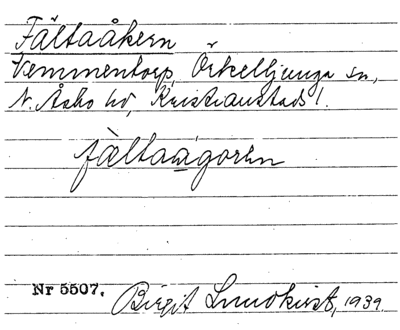 Fältaåkern
Vemmentorp, Örkelljunga sn,
N. Åsbo hd, Kristianstads l.
fàltaågorèn
Nr 5507. Birgit Lundkvist, 1939.